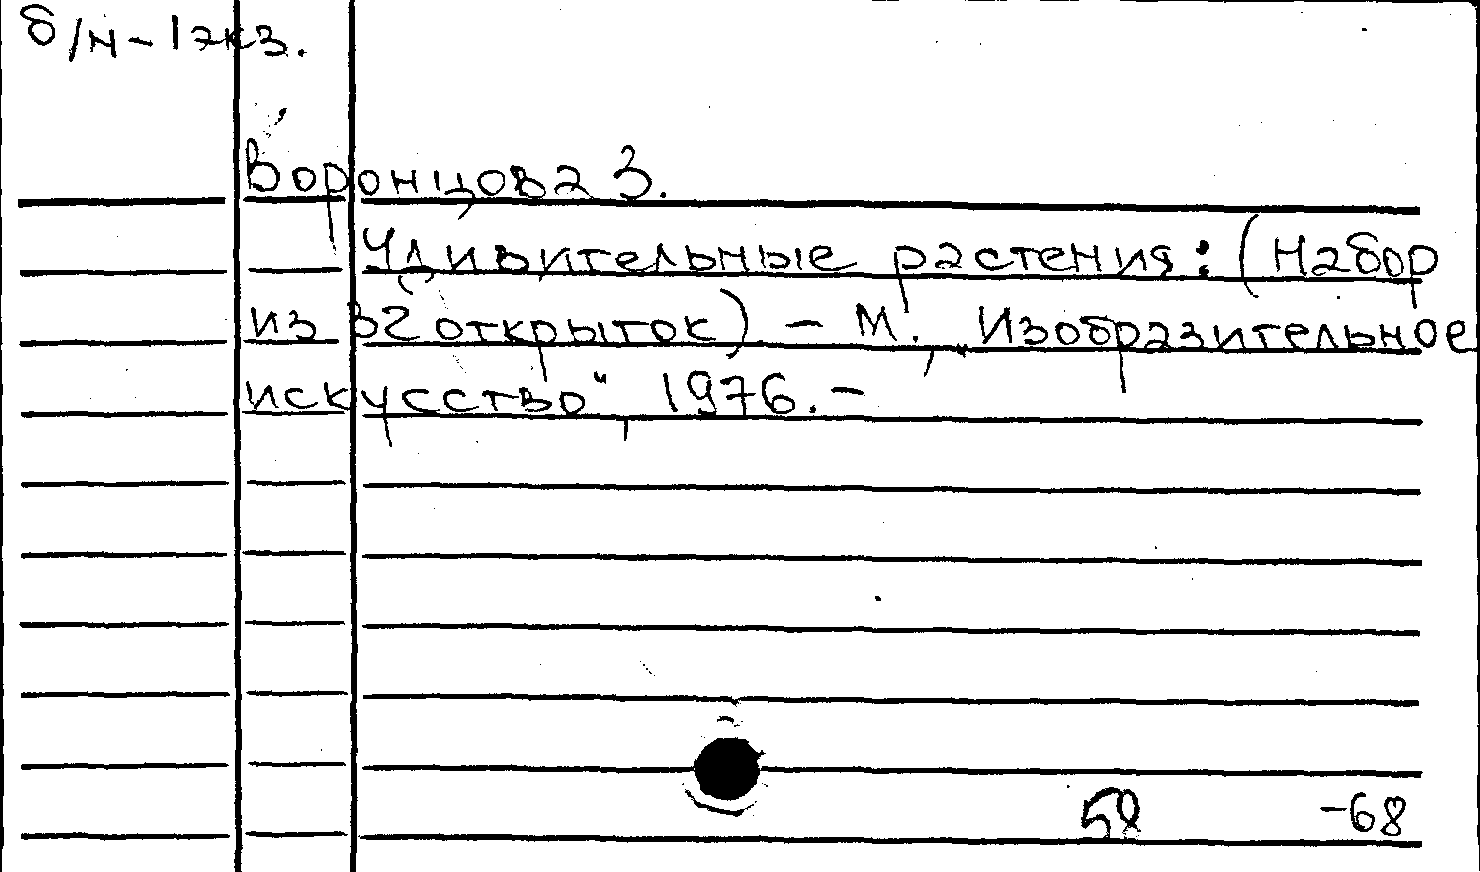 б/н - 1 экз.
Воронцова З.
Удивительные растения: (Набор
из 32 открыток) - М., „Изобразительное
искусство", 1976. -
-68